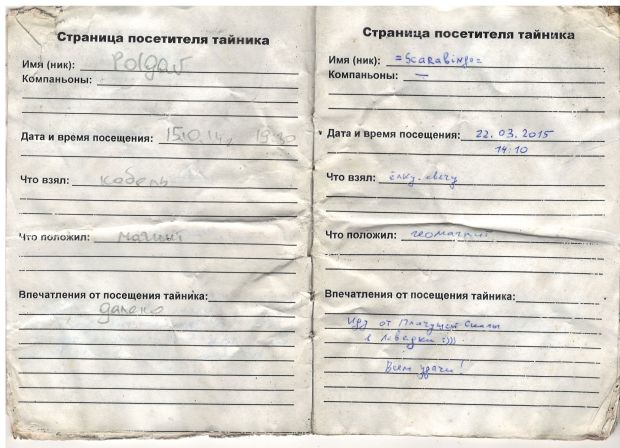 Страница посетителя тайника
Имя (ник): Polgar
Компаньоны:
Дата и время посещения: 15.10.14 19:30
Что взял: кабель
Что положил: магнит
Впечатления от посещения тайника:
далеко
Страница посетителя тайника
Имя (ник): =Scarabing=
Компаньоны: —
Дата и время посещения: 22.03.2015
14:10
Что взял: ёлку, свечу
Что положил: геомагнит
Впечатления от посещения тайника:
Иду от Плачущей Скалы
в Левадки :)))
Всем удачи!